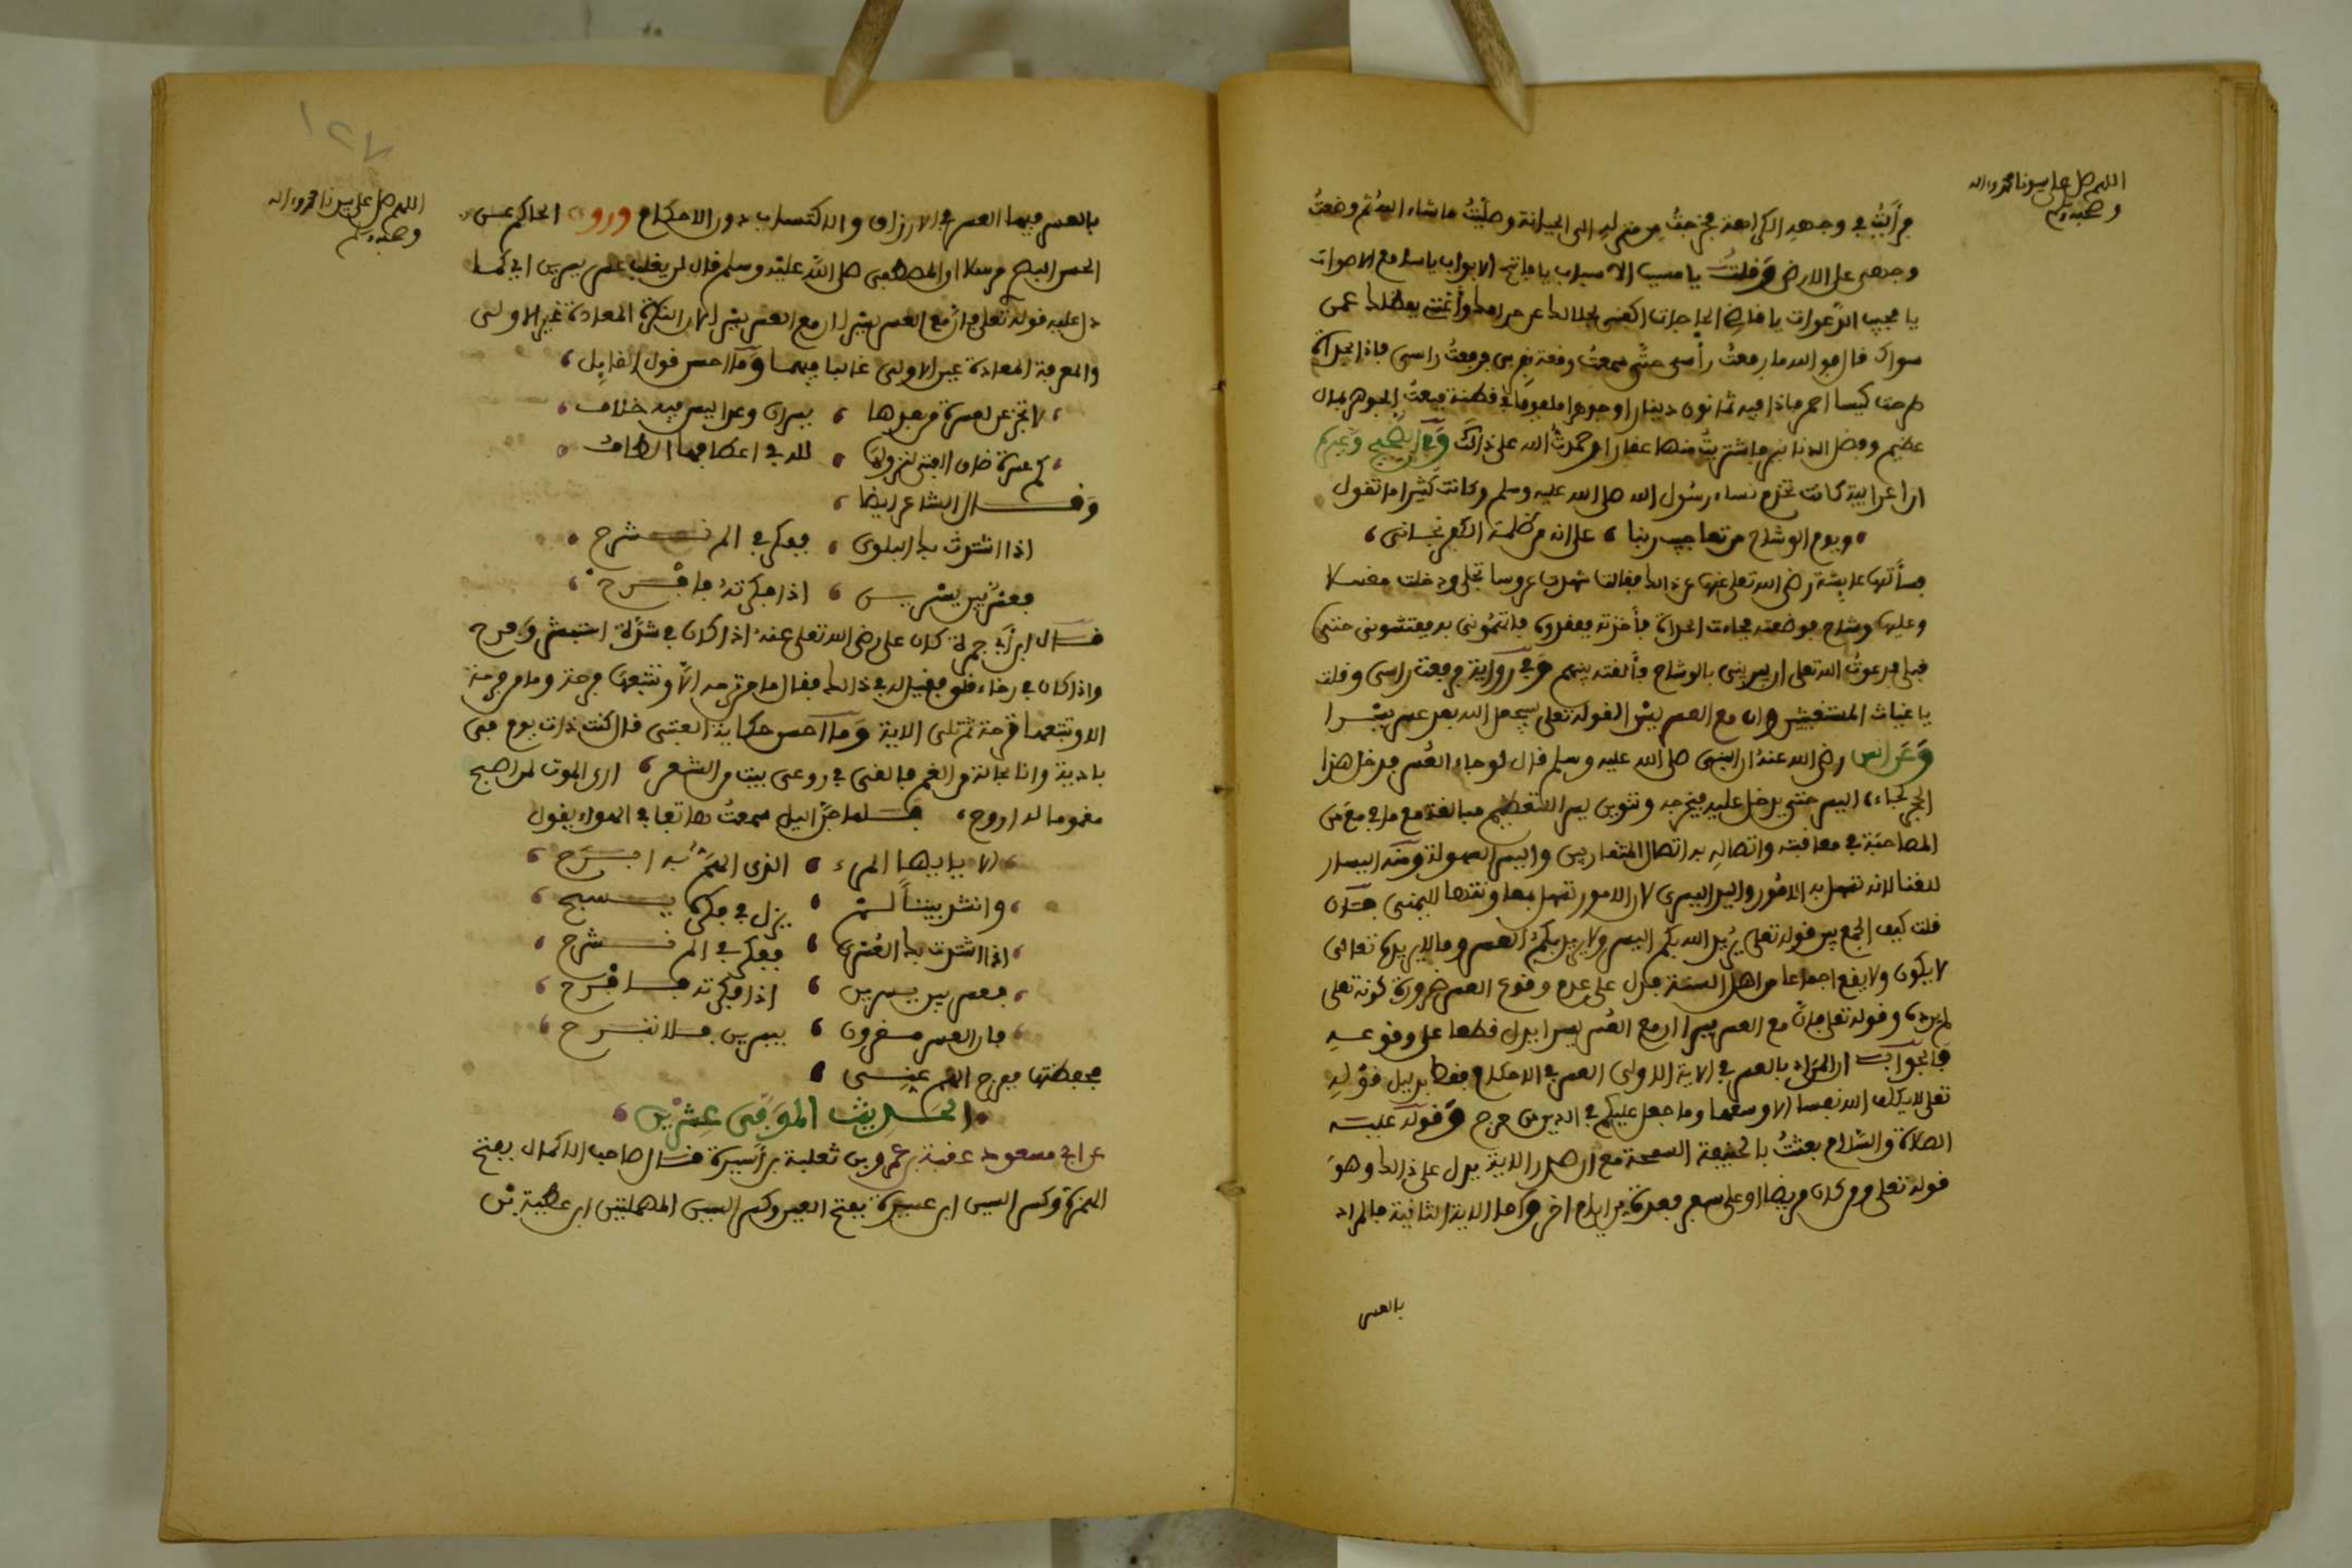 اللهم صل على سيدنا محمد واله
وصحبه وسلم
فرأيت في وجهه الكراهة فخرجت من منزله الى الجبانة وصليت ما شاء الله ثم وضعت
وجهي على الارض وقلت يا مسبب الاسباب يا فاتح الابواب يا سامع الاصوات
يا مجيب الدعوات يا قاضي الحاجات اكفني بحلالك عن حرامك وأغنني بفضلك عمن
سواك قال فوالله ما رفعت رأسي حتى سمعت وقعة بقربي فرفعت راسي فاذا بحدأة
طرحت كيسا احمر فاذا فيه ثمانون دينارا وجوهرا ملفوفا في قطنة فبعت الجوهر بمال
عظيم وفضل الدنانير فاشتريت منها عقارا وحمدت الله على ذالك وفي الصحيح وغيره
ان اعرابية كانت تخدم نساء رسول الله صلى الله عليه وسلم وكانت كثيرا ما تقول
ويوم الوشاح من تعاجيب ربنا ، على انه من ظلمة الكفر نجاني ،
فسألتها عايشة رضي الله تعلى عنها عن ذالك فقالت شهدت عروسا تجلى ودخلت مغتسلا
وعليها وشاح فوضعته فجاءت الحدأة فأخذته ففقدوه فاتهموني به ففتشوني حتى
قبلي فدعوت الله تعلى ان يبريني بالوشاح فألقته بينهم وفي رواية فرفعت راسي وقلت
يا غياث المستغيثين وان مع العسر يسرا لقوله تعلى سيجعل الله بعد عسر يسرا
وعن انس رضي الله عنه ان النبي صلى الله عليه وسلم قال لو جاء العسر فدخل هذا
الحجر لجاء اليسر حتى يدخل عليه فيخرجه وتنوين يسرا للتعظيم مبالغة مع ما في مع من
المصاحبة في معاقبته واتصاله به اتصال المتقاربين واليسر السهولة ومنه اليسار
للغنا لانه تسهل به الامور واليد اليسرى لان الامور تسهل بمعاونتها لليمنى فان
قلت كيف الجمع بين قوله تعلى يريد الله بكم اليسر ولا يريد بكم العسر وما لا يريده تعالى
لا يكون ولا يقع اجماعا من اهل السنة فدل على عدم وقوع العسر ضرورة كونه تعلى
لم يرده وقوله تعلى فان مع العسر يسرا ان مع العسر يسرا يدل قطعا على وقوعه
فالجواب ان المراد بالعسر في الاية الاولى العسر في الاحكام فقط بدليل قوله
تعلى لا يكلف الله نفسا الا وسعها وما جعل عليكم في الدين من حرج وقوله عليه
الصلاة والسلام بعثت بالحنيفية السمحة مع ان صدر الاية يدل على ذالك وهو
قوله تعلى ومن كان مريضا او على سفر فعدة من ايام اخر وكما الاية الثانية فالمراد
بالعسر
١٢٧
اللهم صل على سيدنا محمد واله
وصحبه وسلم
بالعسر فيها العسر في الارزاق والاكتساب دون الاحكام وروى الحاكم عن
الحسن البصري مرسلا ان المصطفى صلى الله عليه وسلم قال لن يغلب عسر يسرين اي كما
دل عليه قوله تعلى فان مع العسر يسرا ان مع العسر يسرا لان النكرة المعادة غير الاولى
والمعرفة المعادة عين الاولى غالبا فيهما وما احسن قول القايل ،
لا تجزعن لعسرة من بعدها ، يسران وعدا ليس فيه خلاف ،
كم عسرة ضاق الفتى لنزولها ، لله في اعطافها الطاف ،
وقال الشاعر ايضا ،
اذا اشتدت بك البلوى ، ففكر في الم نشرح ،
فعسر بين يسرين ، اذا فكرته فافرح ،
قال ابن أبي جمرة كان على رضي الله تعلى عنه اذا كان في شدة استبشر وفرح
واذا كان في رخاء قلق فقيل له في ذالك فقال ما من ترحه الا وتتبعها فرحة وما من فرحة
الا وتتبعها ترحة ثم تلى الاية وما احسن حكاية العتبي قال كنت ذات يوم في
بادية وانا بحالة من الغم فالقي في روعى بيت من الشعر ، ارى الموت لمن اصبح
مغموما له اروح ، فلما جن اليل سمعت هاتفا في الهواء يقول
الا يا ايها المرء ، الذي الهم به ابرح ،
وانشد بيتا لم ، يزل في فكره يسبح ،
اذا اشتدت بك العسرى ، ففكر في الم نشرح ،
فعسر بين يسرين ، اذا فكرته فافرح ،
فان العسر مقرون ، بيسرين فلا تبرح ،
فحفظتها ففرج الله عني ،
الحديث الموفى عشرين ،
عن ابي مسعود عقبة بن عمرو بن ثعلبة بن أسيرة قال صاحب الاكمال بفتح
الهمزة وكسر السين ابن عسيرة بفتح العين وكسر السين المهملتين ابن عطية بن